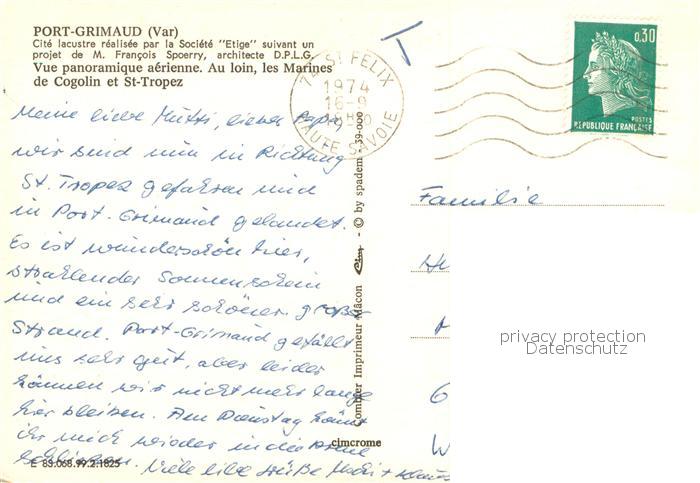 PORT-GRIMAUD (Var)
Cité lacustre réalisée par la Société "Etige" suivant un
projet de M. François Spoerry, architecte D.P.L.G.
Vue panoramique aérienne. Au loin, les Marines
de Cogolin et St-Tropez
Meine liebe Mutti, lieber Papa,
wir sind nun in Richtung
St. Tropez gefahren und
in Port-Grimaud gelandet.
Es ist wunderschön hier,
strahlender Sonnenschein
und ein sehr schöner großer
Strand. Port-Grimaud gefällt
uns sehr gut, aber leider
können wir nicht mehr lange
hier bleiben. Am Dienstag könnt
ihr mich wieder in die Arme
schliessen. Viele liebe Grüße
E 83.068.99.2.1825
cimcrome
Combier Imprimeur Mâcon Cim - © by spadem - 39-000
T
74 ST FELIX
1974
16-9
HAUTE SAVOIE
0,30
POSTES
REPUBLIQUE FRANÇAISE
Familie
privacy protection
Datenschutz